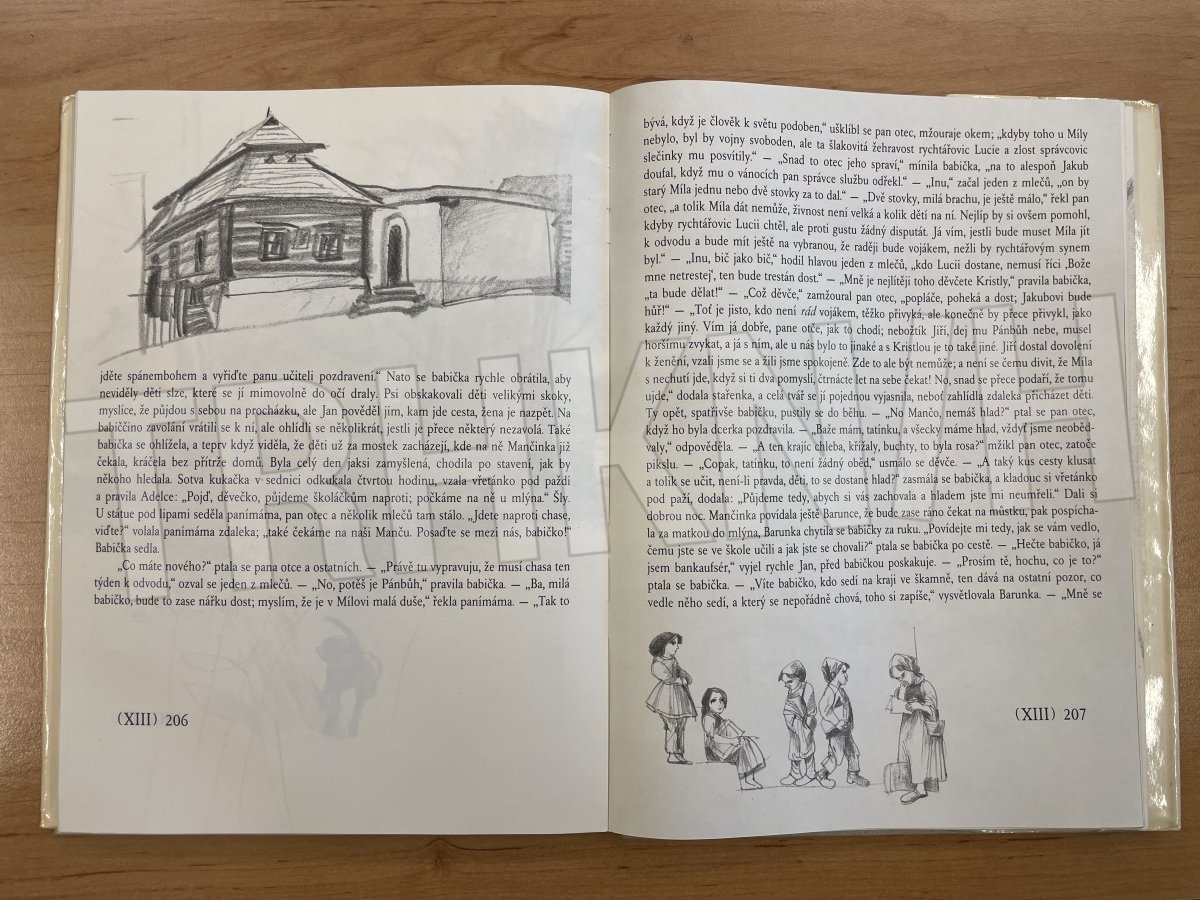 jděte spánembohem a vyřiďte panu učiteli pozdravení.“ Nato se babička rychle obrátila, aby
neviděly děti slze, které se jí mimovolně do očí draly. Psi obskakovali děti velikými skoky,
myslíce, že půjdou s sebou na procházku, ale Jan pověděl jim, kam jde cesta, žena je nazpět. Na
babiččino zavolání vrátili se k ní, ale ohlídli se několikrát, jestli je přece některý nezavolá. Také
babička se ohlížela, a teprv když viděla, že děti už za mostek zacházejí, kde na ně Mančinka již
čekala, kráčela bez přítrže domů. Byla celý den jaksi zamyšlená, chodila po stavení, jak by
někoho hledala. Sotva kukačka v sednici odkukala čtvrtou hodinu, vzala vřetánko pod paždí
a pravila Adelce: „Pojď, děvečko, půjdeme školáčkům naproti; počkáme na ně u mlýna.“ Šly.
U státue pod lipami seděla panímáma, pan otec a několik mlečů tam stálo. „Jdete naproti chase,
viďte?“ volala panímáma zdaleka; „také čekáme na naši Manču. Posaďte se mezi nás, babičko!“
Babička sedla.
„Co máte nového?“ ptala se pana otce a ostatních. — „Právě tu vypravuju, že musí chasa ten
týden k odvodu,“ ozval se jeden z mlečů. — „No, potěš je Pánbůh,“ pravila babička. — „Ba, milá
babičko, bude to zase nářku dost; myslím, že je v Mílovi malá duše,“ řekla panímáma. — „Tak to
(XIII) 206
bývá, když je člověk k světu podoben,“ ušklíbl se pan otec, mžouraje okem; „kdyby toho u Míly
nebylo, byl by vojny svoboden, ale ta šlakovitá žehravost rychtářovic Lucie a zlost správcovic
slečinky mu posvítily.“ — „Snad to otec jeho spraví,“ mínila babička, „na to alespoň Jakub
doufal, když mu o vánocích pan správce službu odřekl.“ — „Inu,“ začal jeden z mlečů, „on by
starý Míla jednu nebo dvě stovky za to dal.“ — „Dvě stovky, milá brachu, je ještě málo,“ řekl pan
otec, „a tolik Míla dát nemůže, živnost není velká a kolik dětí na ní. Nejlíp by si ovšem pomohl,
kdyby rychtářovic Lucii chtěl, ale proti gustu žádný disputát. Já vím, jestli bude muset Míla jít
k odvodu a bude mít ještě na vybranou, že raději bude vojákem, nežli by rychtářovým synem
byl.“ — „Inu, bič jako bič,“ hodil hlavou jeden z mlečů, „kdo Lucii dostane, nemusí říci ‚Bože
mne netrestej‘, ten bude trestán dost.“ — „Mně je nejlítěji toho děvčete Kristly,“ pravila babička,
„ta bude dělat!“ — „Což děvče,“ zamžoural pan otec, „popláče, poheká a dost; Jakubovi bude
hůř!“ — „Toť je jisto, kdo není rád vojákem, těžko přivyká, ale konečně by přece přivykl, jako
každý jiný. Vím já dobře, pane otče, jak to chodí; nebožtík Jiří, dej mu Pánbůh nebe, musel
horšímu zvykat, a já s ním, ale u nás bylo to jinaké a s Kristlou je to také jiné. Jiří dostal dovolení
k ženění, vzali jsme se a žili jsme spokojeně. Zde to ale být nemůže; a není se čemu divit, že Míla
s nechutí jde, když si ti dva pomyslí, čtrnácte let na sebe čekat! No, snad se přece podaří, že tomu
ujde,“ dodala stařenka, a celá tvář se jí pojednou vyjasnila, neboť zahlídla zdaleka přicházet děti.
Ty opět, spatřivše babičku, pustily se do běhu. — „No Mančo, nemáš hlad?“ ptal se pan otec,
když ho byla dcerka pozdravila. — „Baže mám, tatínku, a všecky máme hlad, vždyť jsme neoběd-
valy,“ odpověděla. — „A ten krajíc chleba, křížaly, buchty, to byla rosa?“ mžikl pan otec, zatoče
pikslu. — „Copak, tatínku, to není žádný oběd,“ usmálo se děvče. — „A taký kus cesty klusat
a tolik se učit, není-li pravda, děti, to se dostane hlad?“ zasmála se babička, a kladouc si vřetánko
pod paží, dodala: „Půjdeme tedy, abych si vás zachovala a hladem jste mi neumřeli.“ Dali si
dobrou noc. Mančinka povídala ještě Barunce, že bude zase ráno čekat na můstku, pak pospícha-
la za matkou do mlýna, Barunka chytila se babičky za ruku. „Povídejte mi tedy, jak se vám vedlo,
čemu jste se ve škole učili a jak jste se chovali?“ ptala se babička po cestě. — „Hečte babičko, já
jsem bankaufsér,“ vyjel rychle Jan, před babičkou poskakuje. — „Prosím tě, hochu, co je to?“
ptala se babička. — „Víte babičko, kdo sedí na kraji ve škamně, ten dává na ostatní pozor, co
vedle něho sedí, a který se nepořádně chová, toho si zapíše,“ vysvětlovala Barunka. — „Mně se
(XIII) 207